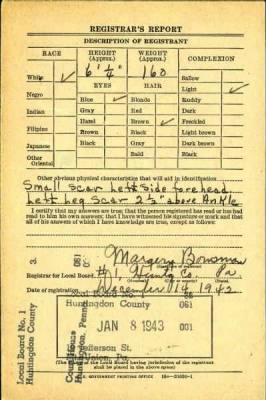 REGISTRAR'S REPORT
DESCRIPTION OF REGISTRANT
RACE HEIGHT (Approx.) WEIGHT (Approx.) COMPLEXION
White ✓ 6' ¼" 160 Sallow
EYES HAIR Light ✓
Negro Blue ✓ Blonde Ruddy
Indian Gray Red Dark
Filipino Hazel Brown ✓ Freckled
Japanese Brown Black Light brown
Other Black Gray Dark brown
Oriental Bald Black
Other obvious physical characteristics that will aid in identification
Small Scar Left Side forehead
Left Leg Scar 2½" above Ankle
I certify that my answers are true; that the person registered has read or has had
read to him his own answers; that I have witnessed his signature or mark and that
all of his answers of which I have knowledge are true, except as follows:
Margery Bousman
Registrar for Local Board #1 Hunting Co. Pa
Date of registration December 14, 1942
Local Board No. 1
Huntingdon County
061
JAN 8 1943
Jefferson St.
Union, Pa.
Local Board No. 1
Huntingdon County